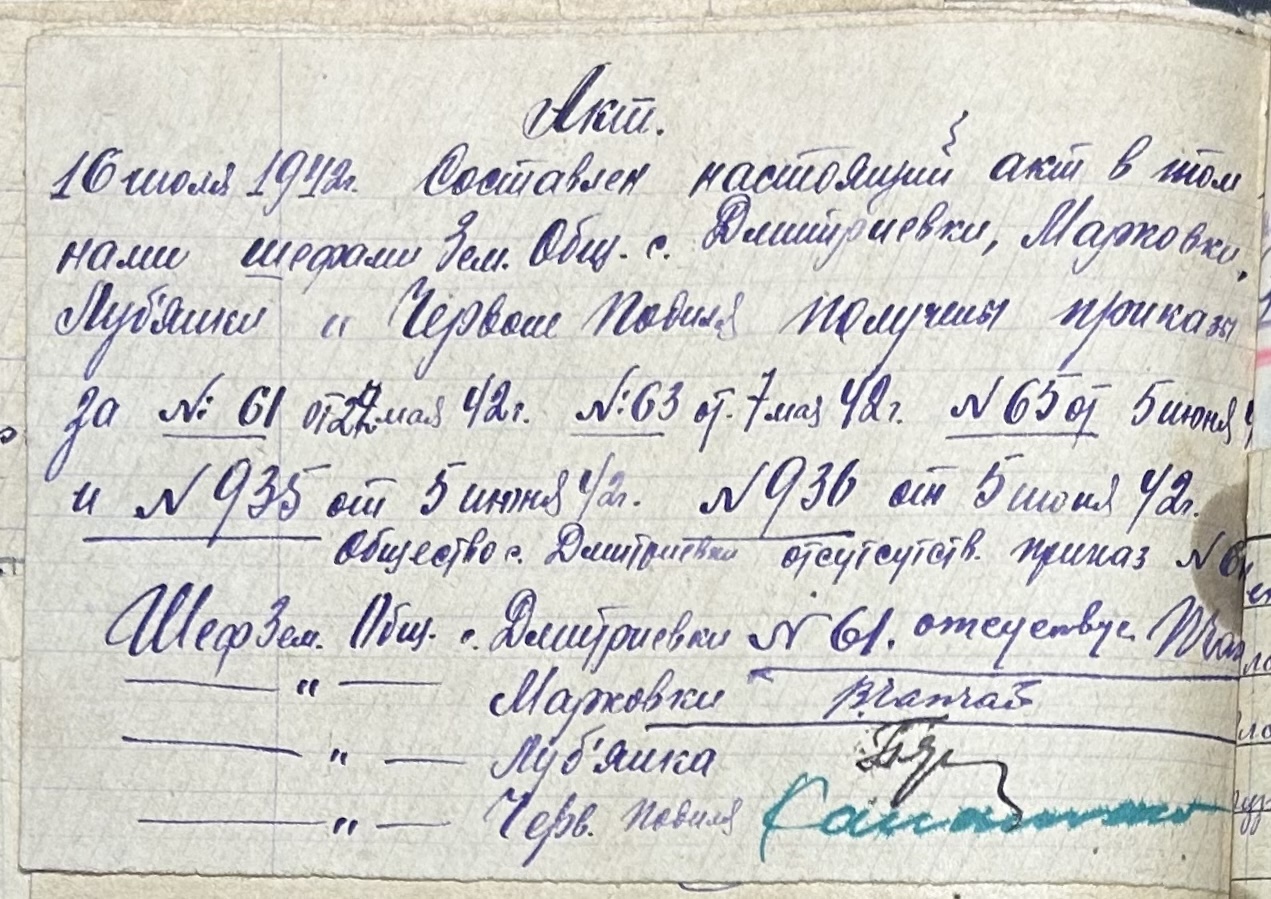 Акт.
16 июля 1942г. Составлен настоящий акт в том
нами шефами Зем. Общ. с. Дмитриевки, Марковки,
Луб'янки и Червоне Повиля получены приказы
за №: 61 от 27 мая 42г. №: 63 от. 7 мая 42г. № 65 от 5 июня
и № 935 от 5 июня 42г. № 936 от 5 июня 42г.
Общество с. Дмитриевки отсутсутств. приказ №
Шеф Зем. Общ. с. Дмитриевки № 61. отсуствуе
—— " —— Марковки
—— " —— Луб'янка
—— " —— Черв. Повиля